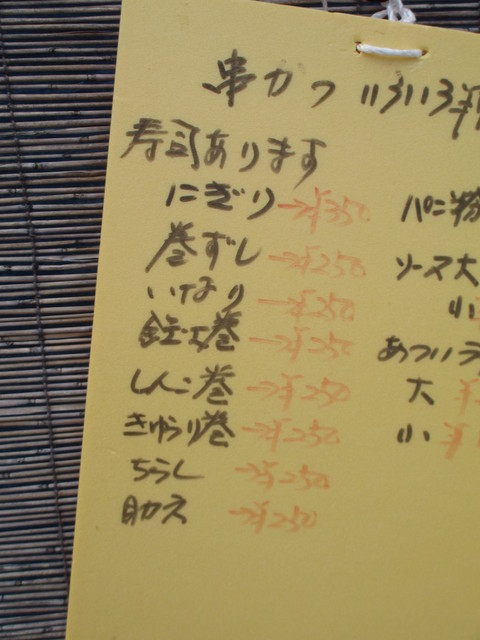 串かつ いろいろ
寿司あります
にぎり→¥350
巻ずし→¥250
いなり→¥250
鉄火巻→¥250
しんこ巻→¥250
きゅうり巻→¥250
ちらし→¥250
助六→¥250
パン粉
ソース大
小
あついラ
大
小 ¥